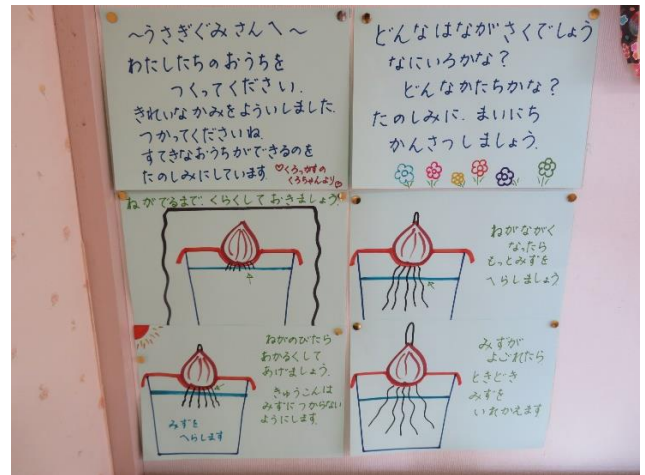 ～うさぎぐみさんへ～
わたしたちのおうちを
つくってください.
きれいなかみをよういしました.
つかってくださいね.
すてきなおうちができるのを
たのしみにしています.
♡くろっかすの
くろちゃんより♡
どんなはながさくでしょう
なにいろかな?
どんなかたちかな?
たのしみに. まいにち
かんさつしましょう.
ねがでるまで、くらくしておきましょう
ねがながく
なったら
もっとみずを
へらしましょう
ねがのびたら
あかるくして
あげましょう.
きゅうこんは
みずにつからない
ようにします.
みずを
へらします
みずが
よごれたら
ときどき
みずを
いれかえます